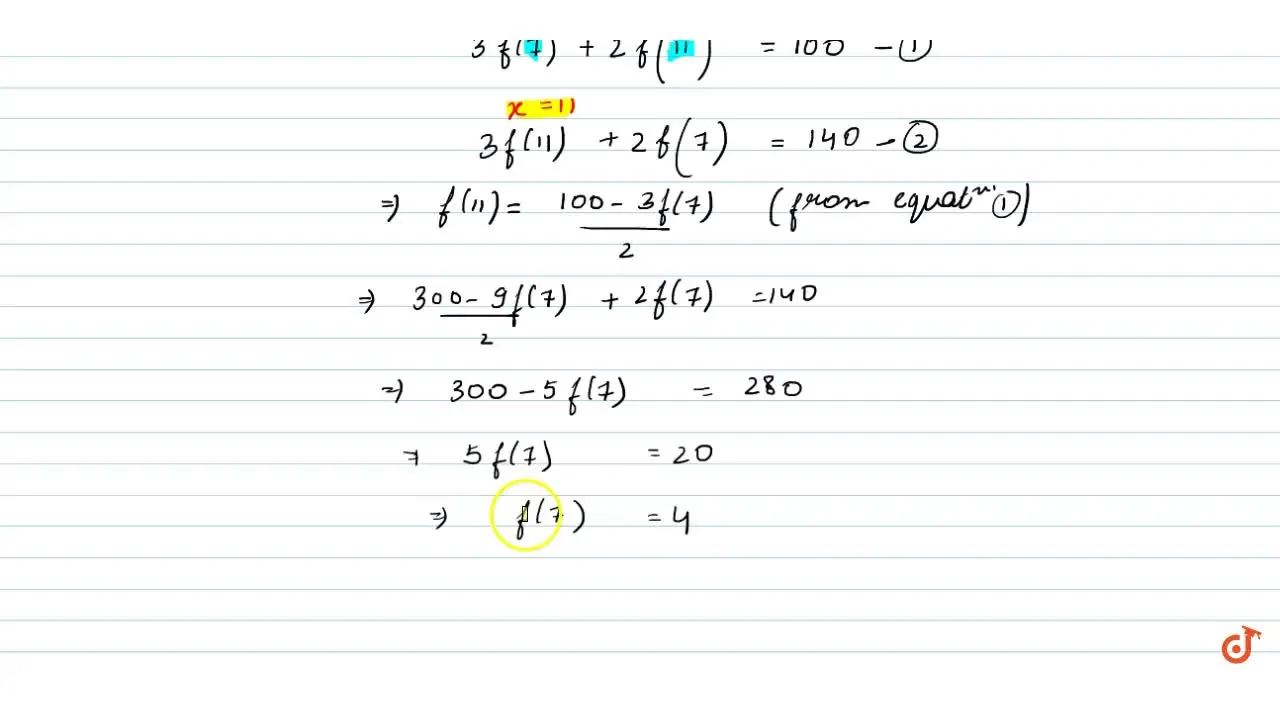 3f(7) + 2f(11) = 100 - ①
x = 11
3f(11) + 2f(7) = 140 - ②
⇒ f(11) = 100 - 3f(7) (from equatⁿ. ①)
2
⇒ 300 - 9f(7) + 2f(7) = 140
2
⇒ 300 - 5f(7) = 280
⇒ 5f(7) = 20
⇒ f(7) = 4